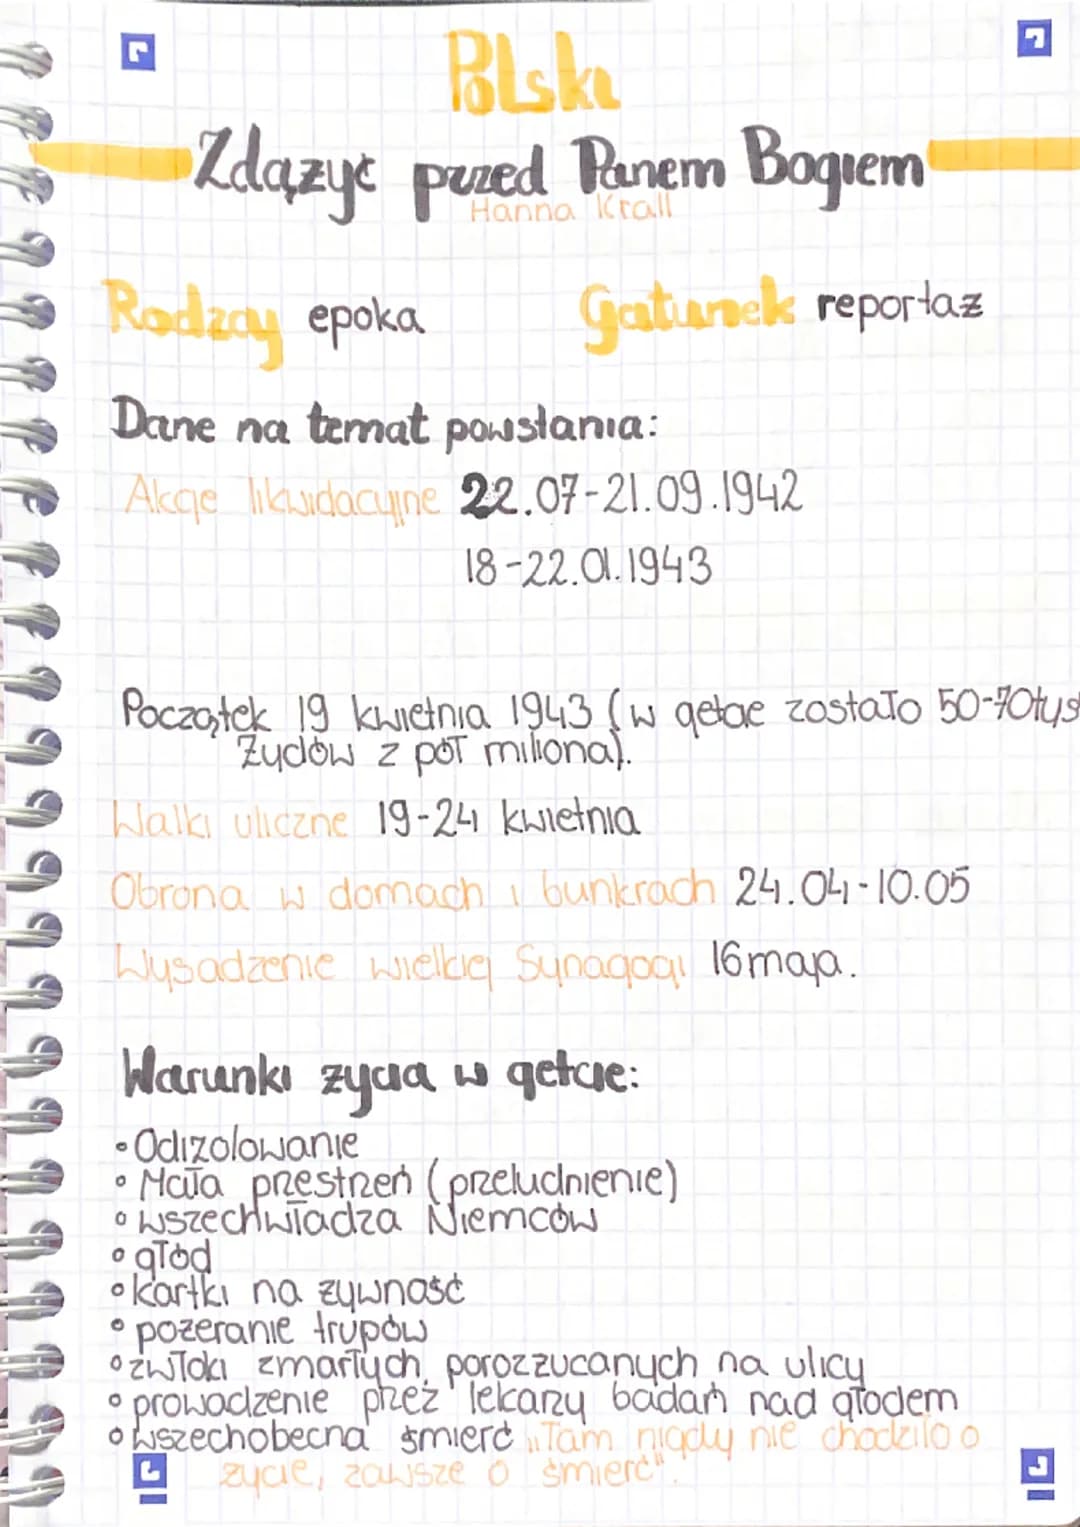 Polski
Zdążyć przed Panem Bogiem
Hanna Krall
Rodzaj epoka Gatunek reportaż
Dane na temat powstania:
Akcje likwidacyjne 22.07-21.09.1942
18-22.01.1943
Początek 19 kwietnia 1943 (w getcie zostało 50-70tyś
Żydów z pół miliona).
Walki uliczne 19-24 kwietnia
Obrona w domach i bunkrach 24.04-10.05
Wysadzenie wielkiej Synagogi 16 maja.
Warunki życia w getcie:
• Odizolowanie
• Mała przestrzeń (przeludnienie)
• wszechwładza Niemców
• głód
• kartki na żywność
• pożeranie trupów
• zwłoki zmarłych, porozrzucanych na ulicy
• prowadzenie przez lekarzy badań nad głodem
• wszechobecna śmierć „Tam nigdy nie chodziło o
życie, zawsze o śmierć".